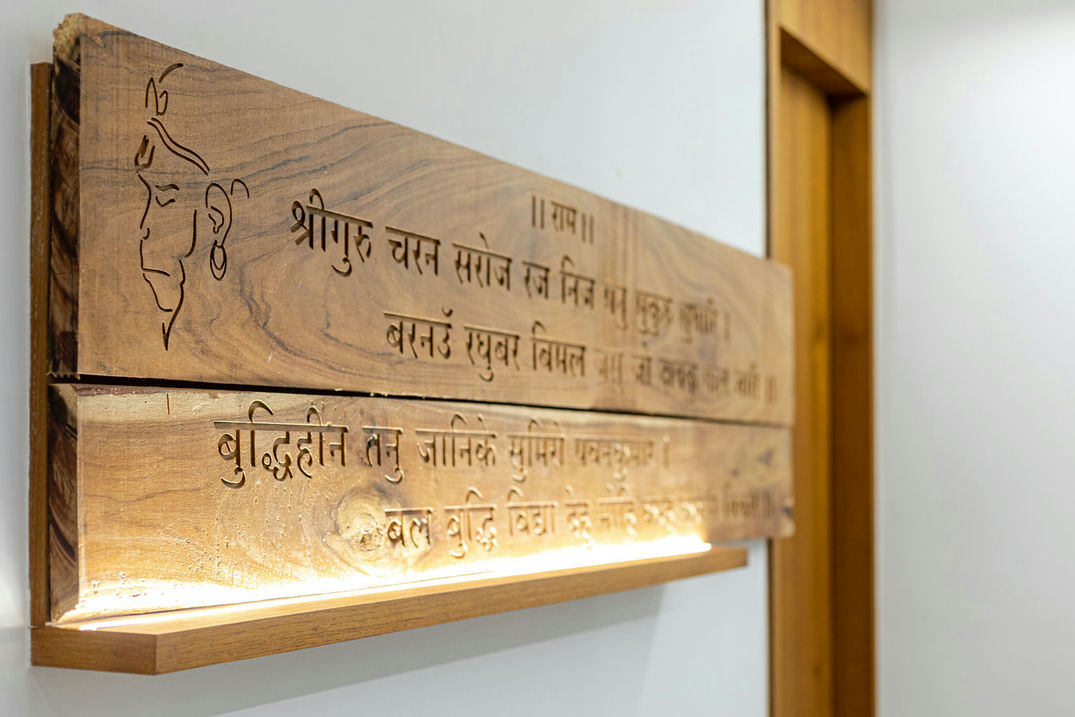 || राम ||
श्रीगुरु चरन सरोज रज निज मनु
बरनउँ रघुबर विमल जसु जो
बुद्धिहीन तनु जानिके सुमिरो पवनकुमार |
बल बुद्धि विद्या देहु मोहि